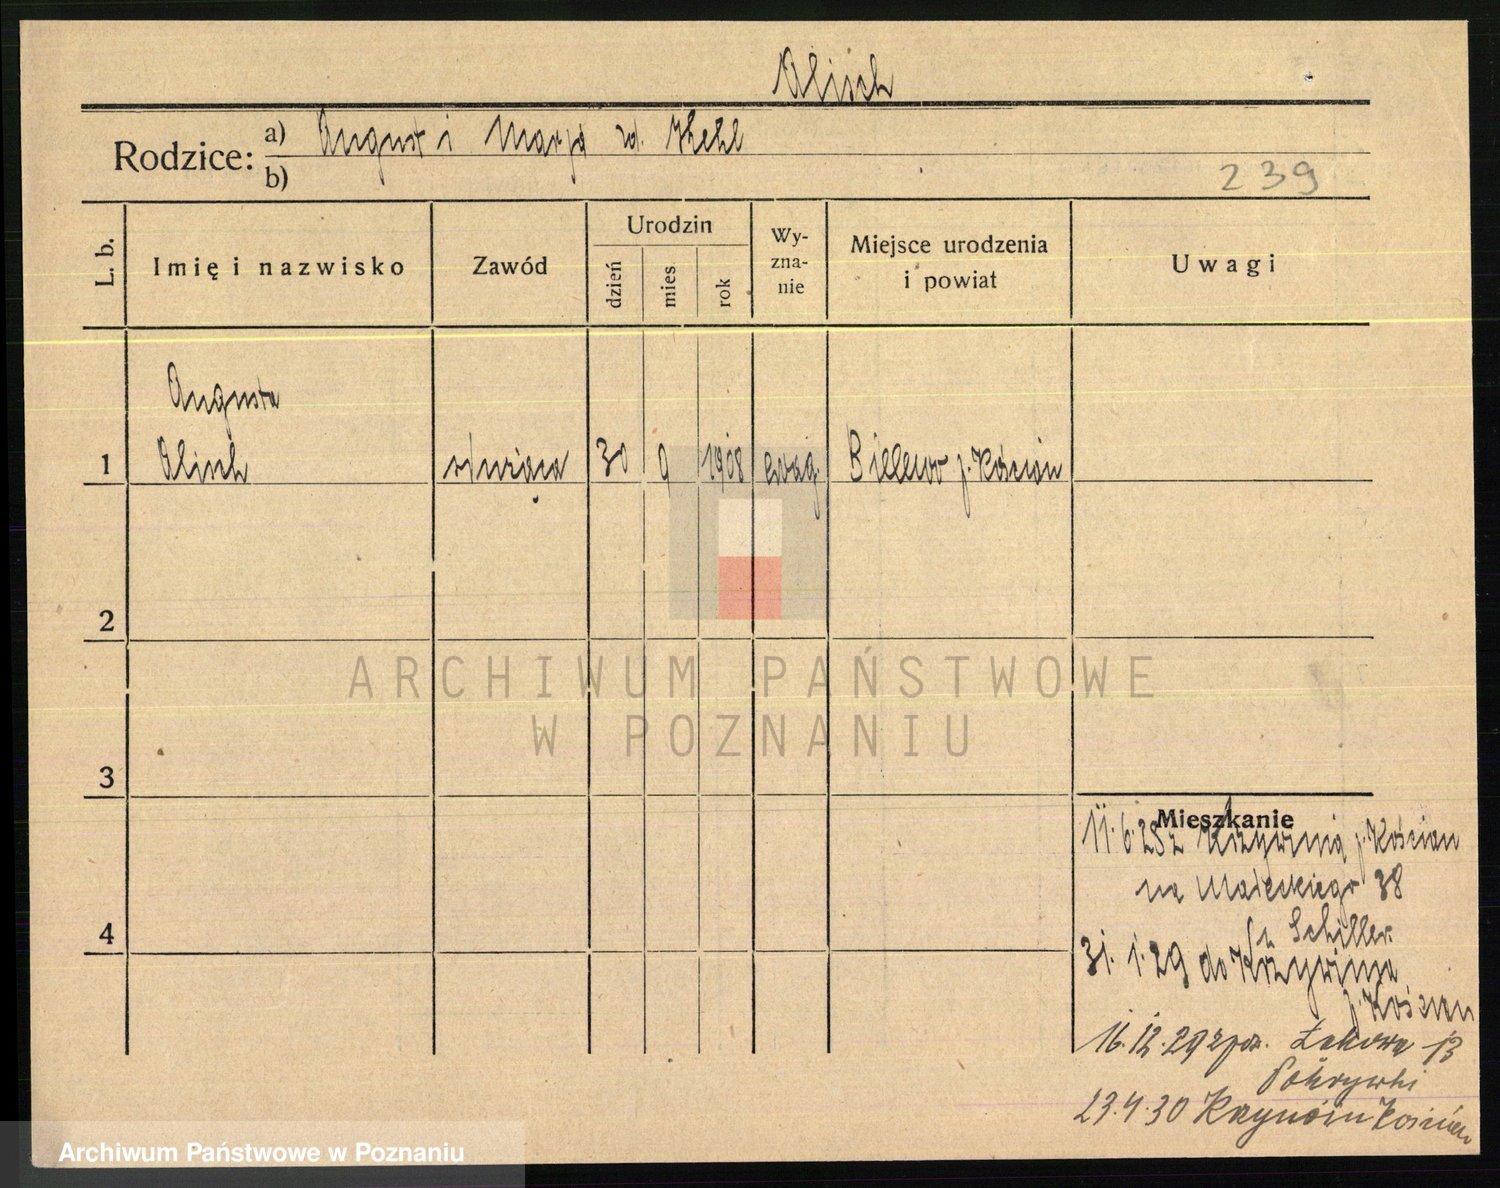 Alisch
Rodzice: a) August i Marja zd. Hehl
b)
239
L. b.
Imię i nazwisko
Zawód
Urodzin
dzień
mies
rok
Wy-
zna-
nie
Miejsce urodzenia
i powiat
Uwagi
Augusta
1 Alisch służąca 30 9 1908 ewag. Bielewo p. Kościan
2
ARCHIWUM PAŃSTWOWE
W POZNANIU
3
Mieszkanie
11.6.28 z Krzywinia p. Kościan
na Małeckiego 38
z Schiller
4
31.1.29 do Krzywinia
p. Kościan
16.12.29 zpow. Łąkowa 13
23.4.30 Krzywiń Kościan
Archiwum Państwowe w Poznaniu